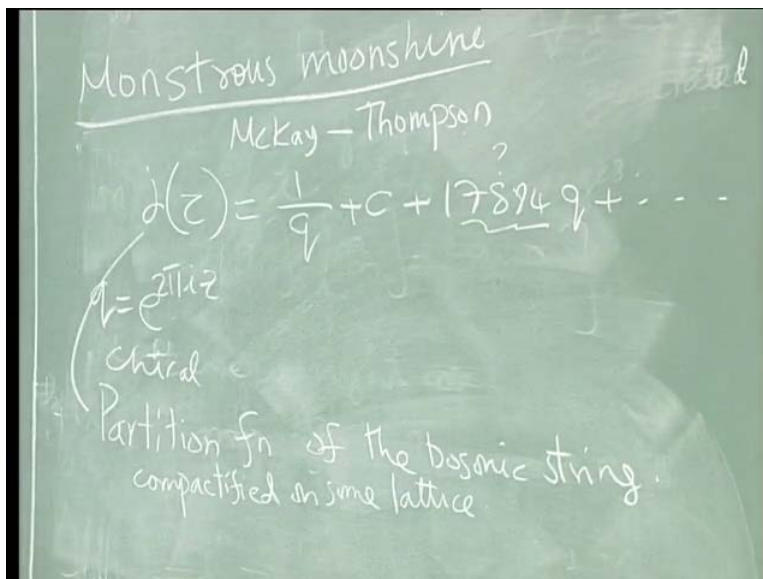 Monstrous moonshine
McKay - Thompson
?
j(τ) = 1/q + C + 17894 q + ....
q = e^2πiτ
chiral
Partition fn of the bosonic string.
compactified on some lattice